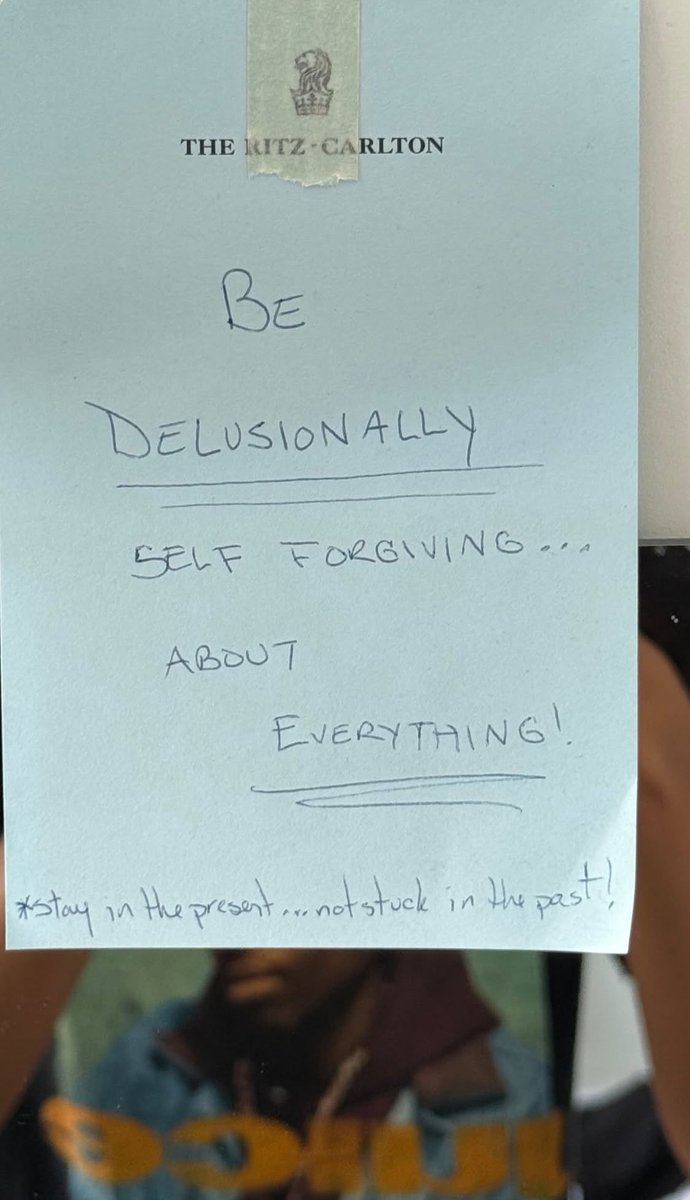 THE RITZ-CARLTON
BE
DELUSIONALLY
SELF FORGIVING...
ABOUT
EVERYTHING!
*stay in the present...not stuck in the past!